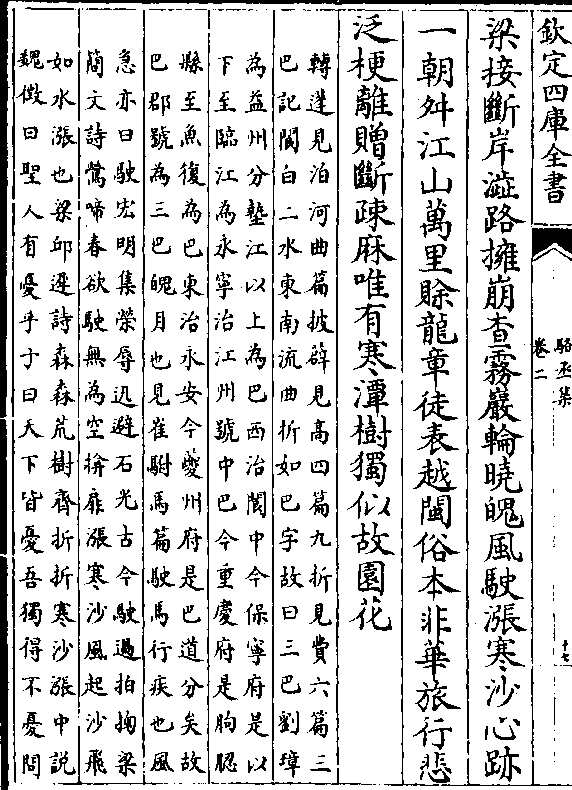 欽定四庫全書
駱丞集
卷二
十七
梁接斷岸澁路擁崩查霧巖輪曉魄風駛漲寒沙心跡
一朝舛江山萬里賖龍章徒表越閩俗本非華旅行悲
泛梗離贈斷疎麻唯有寒潭樹獨似故園花
轉蓬見泊河曲篇披薜見髙四篇九折見費六篇三
巴記閬白二水東南流曲折如巴字故曰三巴劉璋
為益州分墊江以上為巴西治閬中今保寧府是以
下至臨江為永寧治江州號中巴今重慶府是朐䏰
縣至魚復為巴東治永安今䕫州府是巴道分矣故
巴郡號為三巴魄月也見崔駙馬篇駛馬行疾也風
急亦曰駛宏明集榮辱迅避石光古今駛過拍掬梁
簡文詩鶯啼春欲駛無為空揜扉漲寒沙風起沙飛
如水漲也梁邱遲詩森森荒樹齊折折寒沙漲中説
魏徴曰聖人有憂乎子曰天下皆憂吾獨得不憂問